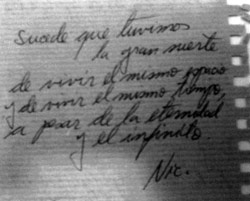 Sucede que tuvimos
la gran suerte
de vivir el mismo espacio
y de vivir el mismo tiempo,
a pesar de la eternidad
y el infinito
Nic.